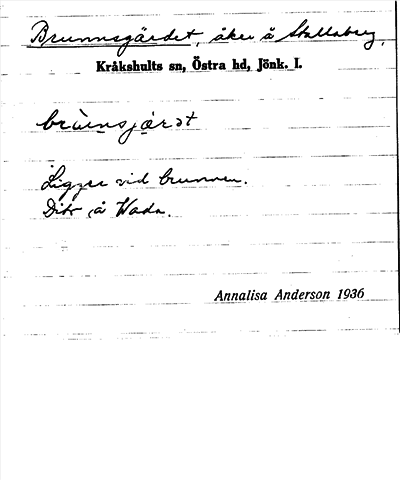 Brunnsgärdet, åker å Stallaberg,
Kråkshults sn, Östra hd, Jönk. l.
brùnsjærət
Ligger vid brunnen.
Dito å Wada.
Annalisa Anderson 1936